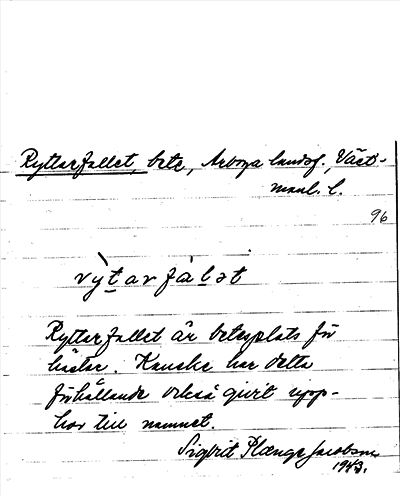 Ryttarfallet, bete, Arboga landsf., Väst-
manl. l.
96
rỳtarfálət
Ryttarfallet är betesplats för
hästar. Kanske har detta
förhållande också givit upp-
hov till namnet.
Sigbrit Plænge Jacobson
1943.